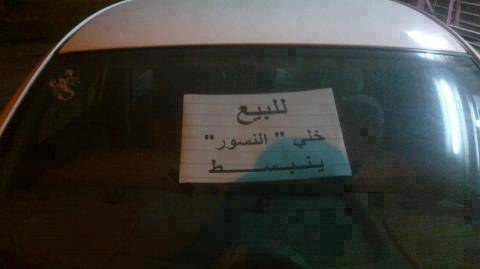 للبيع
خلي " النسور "
ينبسط